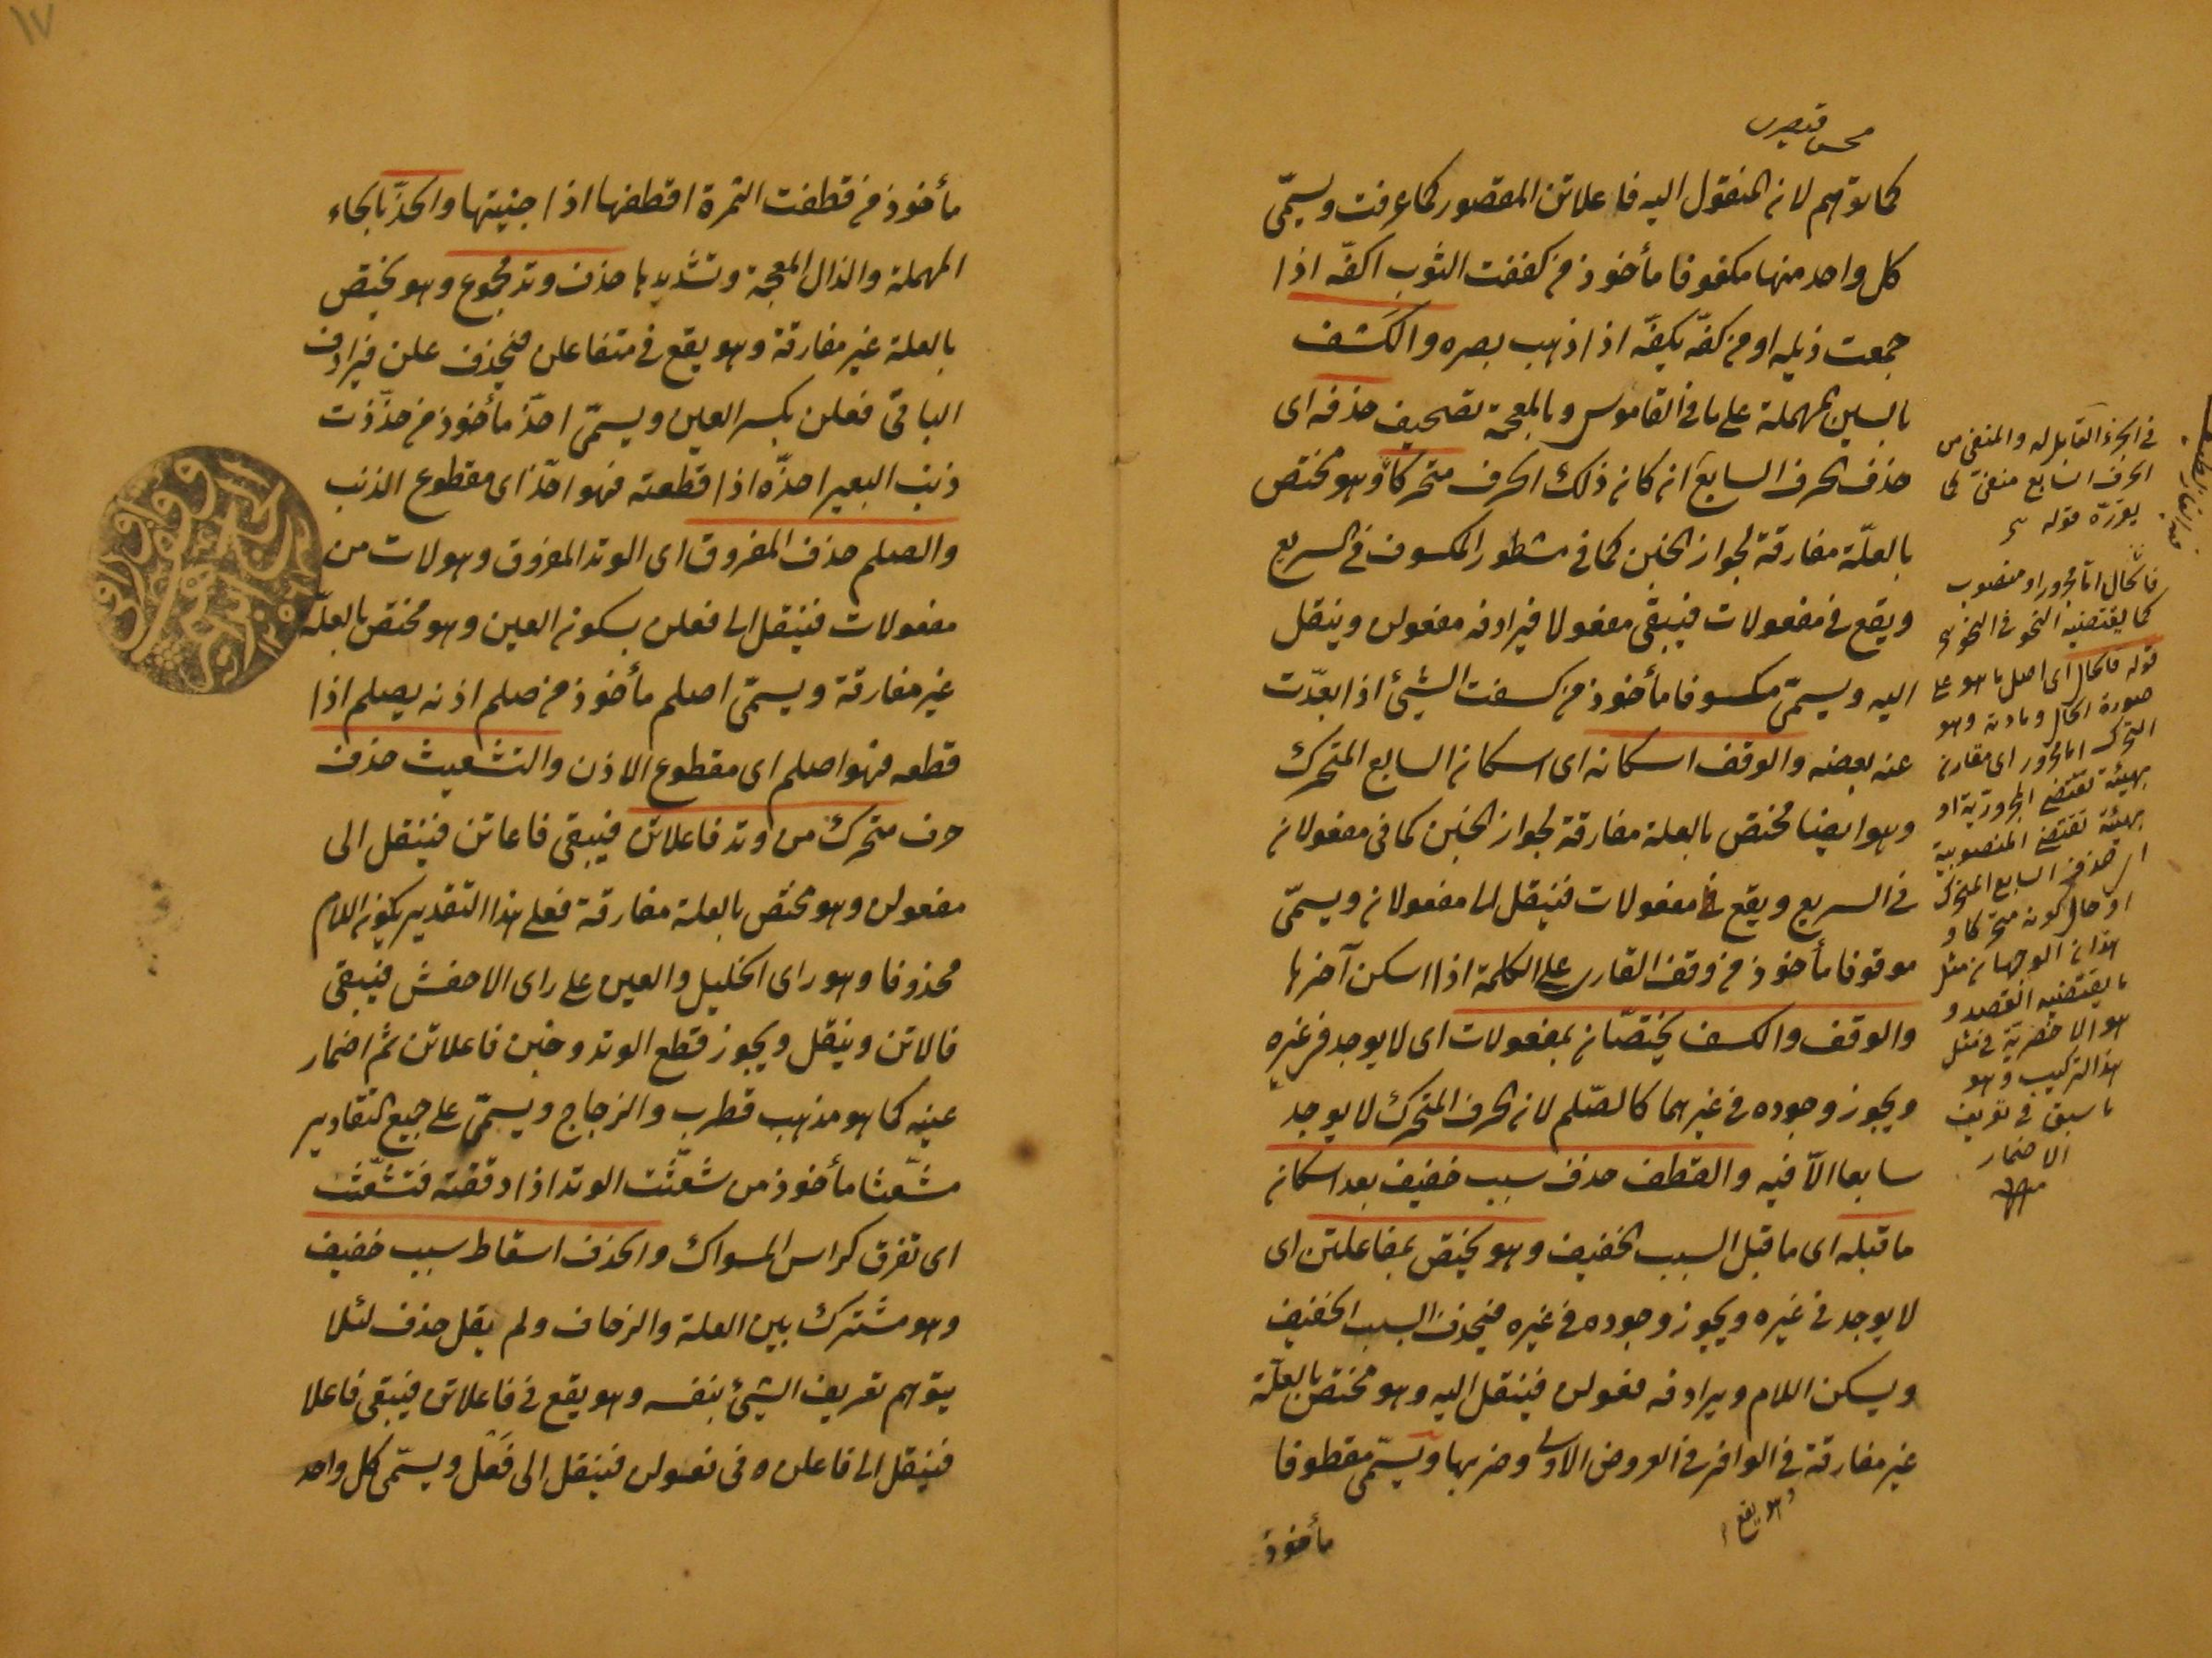 كما توهم لان المنقول اليه فاعلاتن المقصور كما عرفت ويسمّى
كل واحد منها مكفوفا مأخوذ من كففت الثوب اكفّه اذا
جمعت ذيله او من كفّه يكفّه اذا ذهب بصره والكشف
بالسين المهملة على ما فى القاموس وبالمعجمة تصحيف حذفه اى
حذف الحرف السابع ان كان ذلك الحرف متحركا وهو مختص
بالعلّة مفارقة لجواز الخبن كما فى مشطور المكسوف فى السريع
ويقع فى مفعولات فيبقى مفعولا فيرادفه مفعولن وينقل
اليه ويسمّى مكسوفا مأخوذ من كسفت الشيئ اذا ابعدت
عنه بعضه والوقف اسكانه اى اسكان السابع المتحرك
وهو ايضا مختص بالعلة مفارقة لجواز الخبن كما فى مفعولان
فى السريع ويقع فى مفعولات فينقل الى مفعولان ويسمّى
موقوفا مأخوذ من وقف القارى على الكلمة اذا اسكن آخرها
والوقف والكسف يختصّان بمفعولات اى لا يوجد فى غيره
ويجوز وجوده فى غيرهما كالصّلم لان الحرف المتحرك لا يوجد
سابعا الّا فيه والقطف حذف سبب خفيف بعد اسكان
ما قبله اى ما قبل السبب الخفيف وهو يختص بمفاعلتن اى
لا يوجد فى غيره ويجوز وجوده فى غيره فيحذف السبب الخفيف
ويسكن اللام ويرادفه فعولن فينقل اليه وهو مختص بالعلّة
غير مفارقة فى الوافر فى العروض الاولى وضربها ويسمّى مقطوفا
وهو يقع
مأخوذ
فى الجزء القابل له والمنفى من
الحرف السابع منفىّ كما
يقرّره قوله
فالحال امّا مجرور او منصوب
كما يقتضيه النحو فى النحو
قوله فالحال اى اصل ما هو على
صورة الحال ومادته وهو
التحرك اما مجرور اى مقارن
بهيئة تقتضى المجرورية او
بهيئة تقتضى المنصوبية
اى حذف السابع المتحرك
او حال كونه متحركا و
هذان الوجهان مثل
ما يقتضيه القصد و
هو الاخصرية فى مثل
هذا التركيب وهو
ما سبق فى تعريف
الاضمار
منه
١٧
مأخوذ من قطفت الثمرة اقطفها اذا جنيتها والحذّ بالحاء
المهملة والذال المعجمة وتشديدها حذف وتد مجموع وهو يختص
بالعلة غير مفارقة وهو يقع فى متفاعلن فيحذف علن فيرادف
الباقى فعلن بكسر العين ويسمّى احذّ مأخوذ من حذذت
ذنب البعير احذّه اذا قطعته فهو احذّ اى مقطوع الذنب
والصلم حذف المفروق اى الوتد المفروق وهو لات من
مفعولات فينقل الى فعلن بسكون العين وهو مختص بالعلّة
غير مفارقة ويسمّى اصلم مأخوذ من صلم اذنه يصلم اذا
قطعه فهو اصلم اى مقطوع الاذن والتشعيث حذف
حرف متحرك من وتد فاعلاتن فيبقى فاعاتن فينقل الى
مفعولن وهو مختص بالعلة مفارقة فعلى هذا التقدير يكون اللام
محذوفا وهو راى الخليل والعين على راى الاخفش فيبقى
فالاتن وينقل ويجوز قطع الوتد وخبن فاعلاتن ثم اضمار
عينه كما هو مذهب قطرب والزجاج ويسمّى على جميع التقادير
مشعّثا مأخوذ من شعّثت الوتد اذا دققته فتشعّث
اى تفرق كراس المسواك والحذف اسقاط سبب خفيف
وهو مشترك بين العلة والزحاف ولم يقل حذف لئلا
يتوهم تعريف الشيئ بنفسه وهو يقع فى فاعلاتن فيبقى فاعلا
فينقل الى فاعلن وفى فعولن فينقل الى فَعَل ويسمّى كل واحد